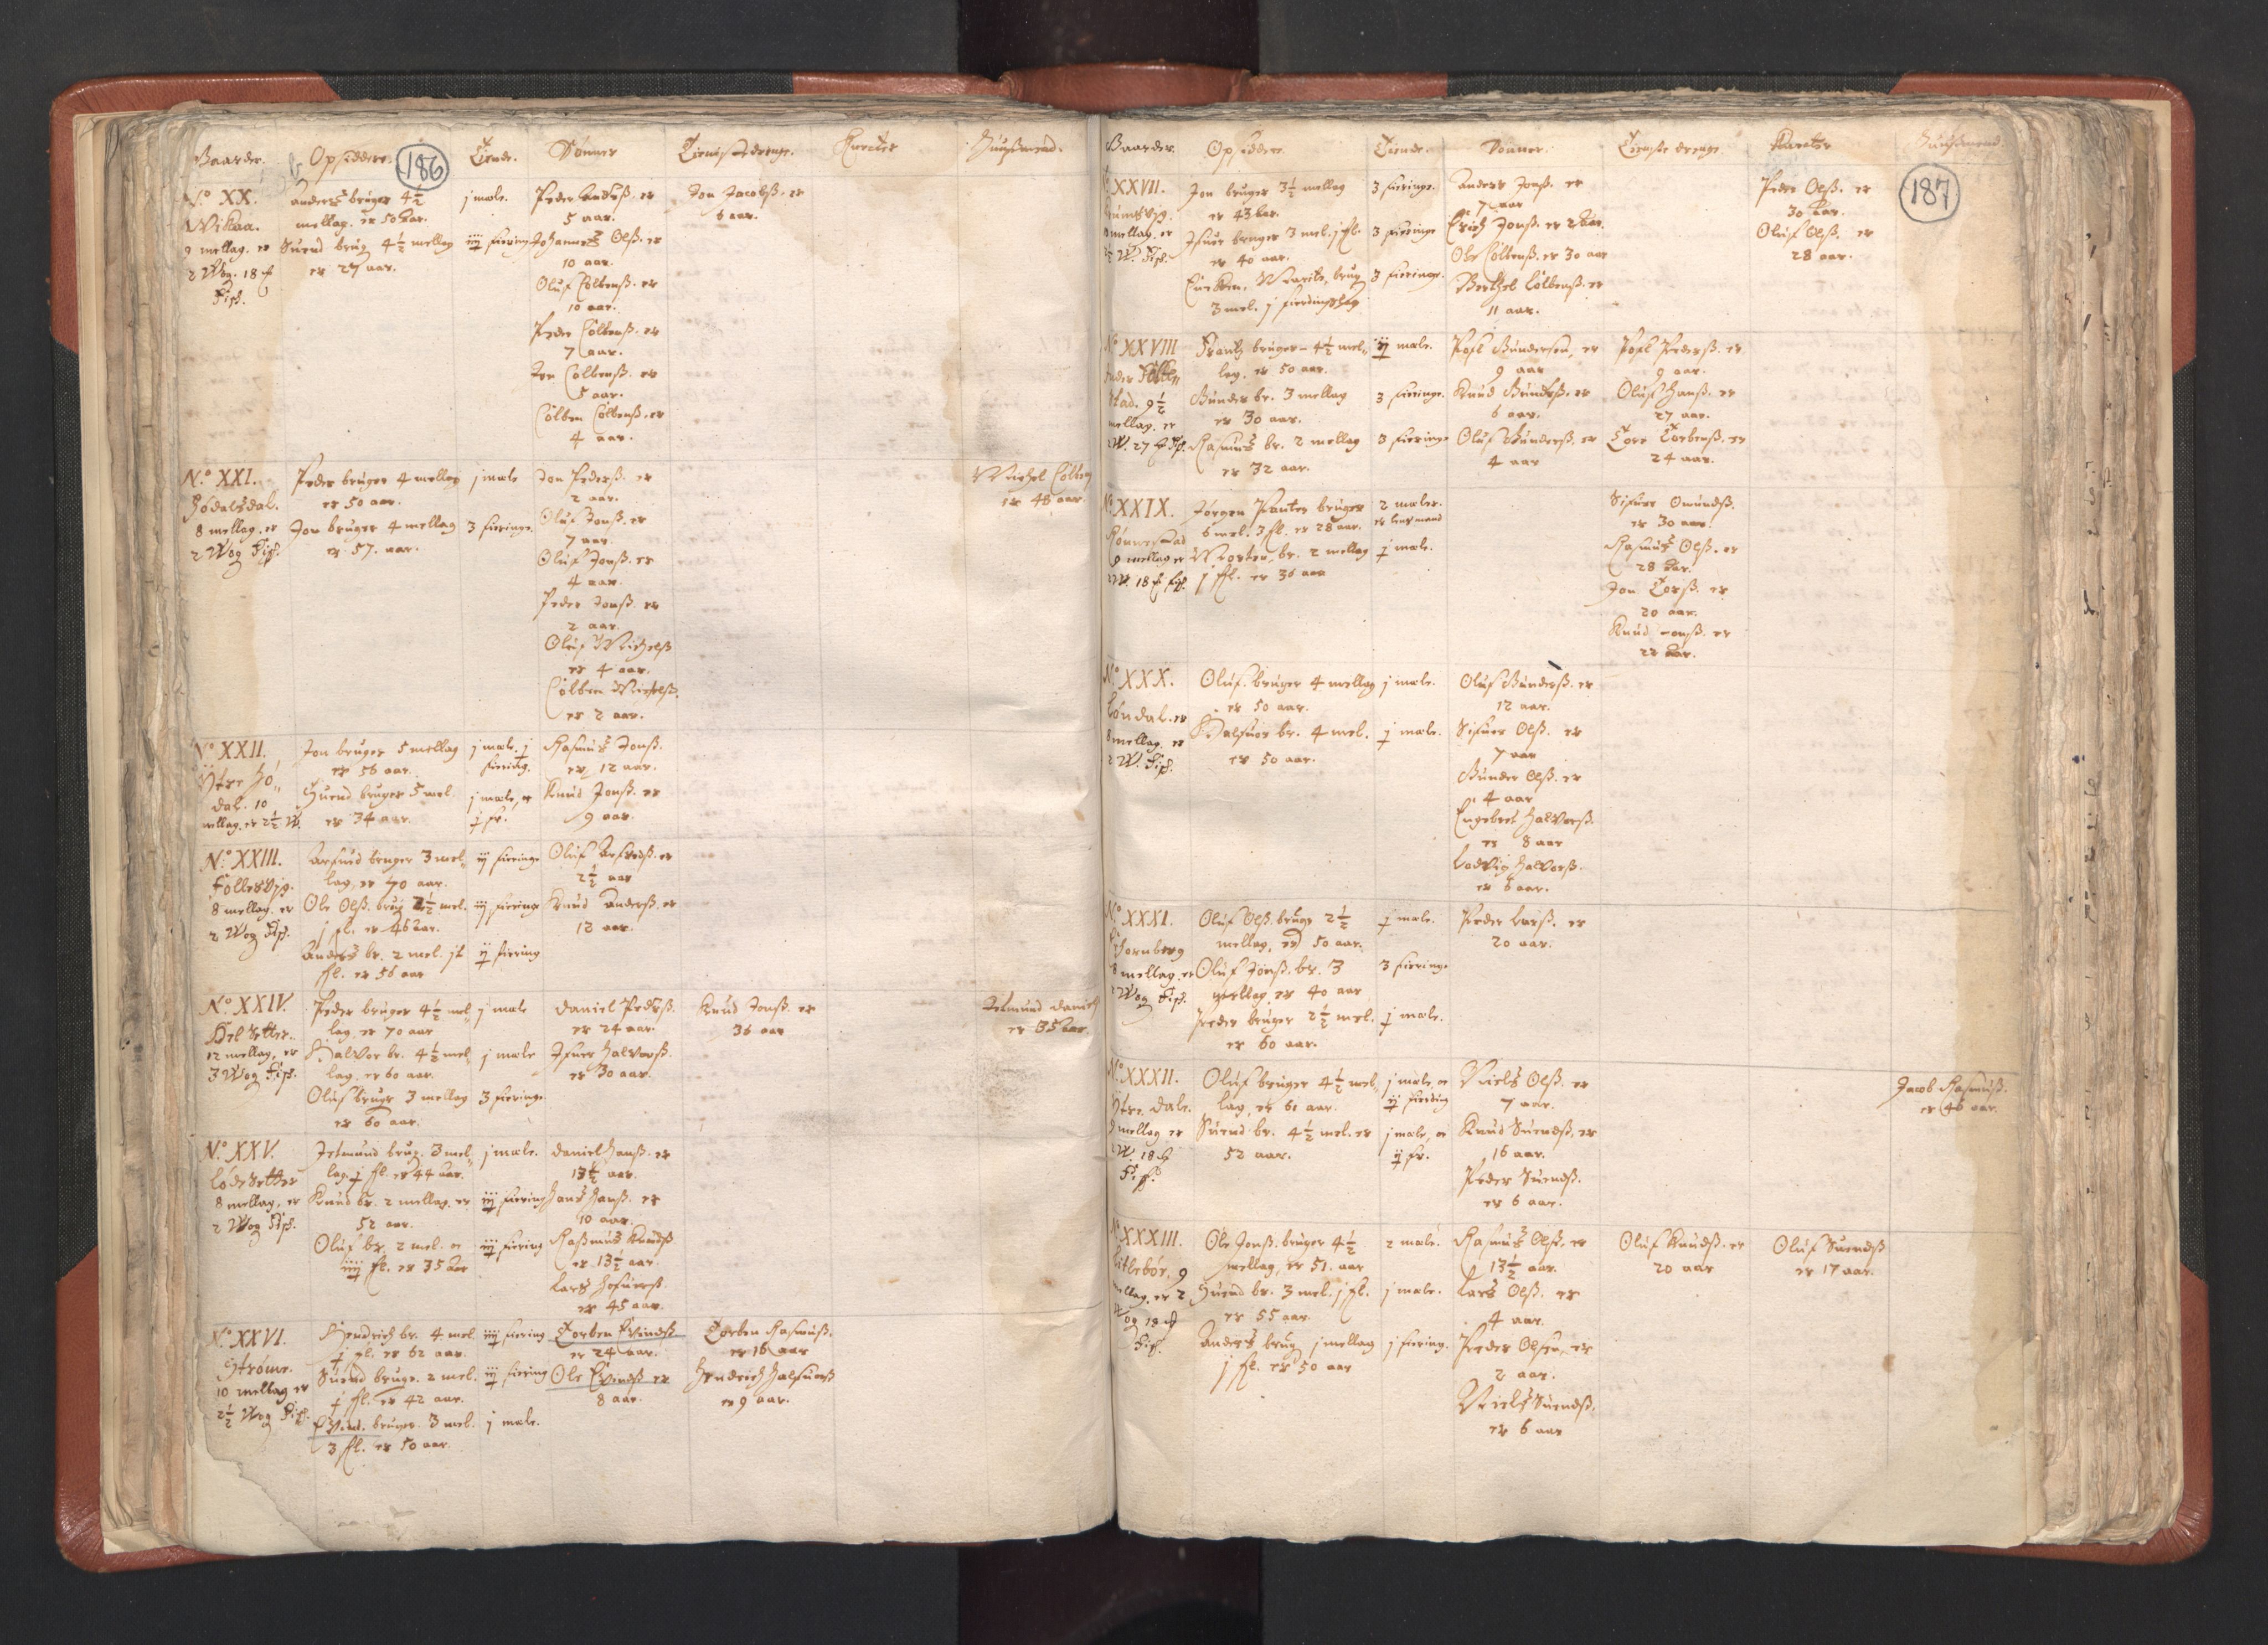 Gaarder. Opsiddere. 186 Tiende. Sønner Tieniste drenge. Knecter Huusmend.
N.o XX.
Wikaa.
9 mellag. er
2 Wog. 18
Fisk.
Anders bruger 4½
mellag. er 50 aar.
Suend brug 4½ mellag
er 27 aar.
j mæle.
iij fiering
Peder Anders. er
5 aar.
Johannes Olß. er
10 aar.
Oluf Colbenß. er
10 aar.
Peder Colbenß. er
7 aar.
Jon Colbenß. er
5 aar.
Colben Colbenß. er
4 aar.
Jon Jacobß. er
6 aar.
N.o XXI.
Hódalsdal.
8 mellag. er
2 Wog Fisk.
Peder bruger 4 mellag
er 50 aar.
Jon bruger 4 mellag
er 57. aar.
j mæle
3 fieringe.
Jon Pederß. er
2 aar.
Oluf Jonß. er
7 aar.
Oluf Jonß. er
4 aar.
Peder Jonß. er
2 aar.
Oluf Michelß
er 4 aar.
Colben Michelß.
er 2 aar.
Michel Colbenß
er 48 aar.
N.o XXII.
Ytre Hó„
dal. 10
mellag. er 2½ W.
Jon bruger 5 mellag
er 56 aar.
Suend bruger 5 mel.
er 34 aar.
j mæle. j
fiering.
j mæle, oc
j fr.
Rasmus Jonß.
er 12 aar.
Knud Jonß. er
9 aar.
N.o XXIII.
Follesvig.
8 mellag. er
2 Wog Fisk.
Arfued bruger 3 mel„
lag, er 70 aar.
Ole Olß. brug 2½ mel.
j fl. er 46 aar.
Anders br. 2 mel. j½
fl. er 56 aar
ij fieringe
iij fieringe
ij fiering
Oluf Arfuedß. er
2½ aar
Knud Anderß. er
12 aar.
N.o XXIV.
Helsetter.
12 mellag, er
3 Wog Fisk.
Peder bruger 4½ mel„
lag, er 70 aar
Halvor br. 4½ mel„
lag, er 60 aar.
Oluf bruge 3 mellag
er 60 aar.
j mæle
j mæle
3 fieringe
Daniel Pederß.
er 24 aar
Ifuer Halvorß.
er 30 aar.
Knud Jonß. er
36 aar
Jetmund Danielß
er 35 aar.
N.o XXV.
Lódesetter
8 mellag, er
2 Wog Fisk.
Jetmund brug. 3 mel„
lag j fl. er 44 aar.
Knud br. 2 mellag. er
52 aar.
Oluf br. 2 mel. oc
iiij fl. er 35 aar
j mæle.
iij fiering
iij fiering
Daniel Hanß. er
13½ aar.
Hans Hanß. er
10 aar.
Rasmus Knudß
er 13½ aar.
Lars Josuerß.
er 45 aar.
N.o XXVI.
Strómme.
10 mellag er
2½ Wog Fisk.
Hendrich br. 4 mel.
j fl. er 62 aar.
Suend bruge. 2 mel.
j fl. er 42 aar.
Evind. bruger 3 mel.
3 fl. er 50 aar.
iiij fiering
iij fiering
j mæle.
Torben Evindß
er 24 aar.
Ole Evindß er
8 aar.
Torben Rasmuß.
er 16 aar
Hendrich Halfuorß
er 9 aar.
Gaarder. Opsiddere. Tiende. Sønner. Tieneste drenge. Knecter Huusmend 187
XXVII.
mellag, er
W. Fisk.
Jon bruger 3½ mellag
er 43 aar.
Ifuer bruger 3 mel. j fl.
er 40 aar.
Encken, Marite, brug
3 mel. j fierdingslag
3 fieringe.
3 fieringe
3 fieringe.
Anders Jonß. er
7 aar
Erich Jonß. er 2 aar.
Ole Colbenß. er 30 aar
Berthel Colbenß. er
11 aar.
Peder Olß. er
30 aar.
Oluf Olß. er
28 aar.
N.o XXVIII
stad. 9½
mellag. er
2 W. 27 Fisk.
Frantz bruger 4½ mel„
lag. er 50 aar.
Gunder br. 3 mellag
er 30 aar.
Rasmus br. 2 mellag
er 32 aar.
ij mæle.
3 fieringe.
3 fieringe
Pofl Gundersen, er
9 aar
Knud Gunderß. er
6 aar.
Oluf Gunderß. er
4 aar
Pofl Pederß. er
9 aar.
Oluf Hanß. er
27 aar.
Tore Torbenß. er
24 aar.
N.o XXIX.
Rónnestad
9 mellag er
2 W. 18 Fisk.
Jørgen Panter bruger
6 mel. 3 fl. er 28 aar.
Morten, br. 2 mellag
j fl. er 36 aar
2 mæler.
er lensmand
j mæle.
Sifuer Omundß.
er 30 aar.
Rasmus Olß. er
28 aar.
Jon Torß. er
20 aar.
Knud Jonß. er
22 aar.
N.o XXX.
Lóndal. er
8 mellag. er
2 W. Fisk.
Oluf. bruger 4 mellag
er 50 aar.
Halfuor br. 4 mel.
er 50 aar.
j mæle.
j mæle.
Oluf Gunderß. er
12 aar.
Sifuer Olß. er
7 aar
Gunder Olß. er
4 aar
Engebret Halvorß.
er 8 aar
Lodvig Halvorß.
er 6 aar.
N.o XXXI.
Thornberg
8 mellag. er
2 Wog Fisk.
Oluf Olß. bruge 2½
mellag, er 50 aar.
Oluf Jonß. br. 3
mellag. er 40 aar
Peder bruger 2½ mel.
er 60 aar.
j mæle.
3 fieringe
j mæle.
Peder Larß. er
20 aar.
N.o XXXII.
Ytre Dale.
9 mellag er
2 W. 18
Fisk.
Oluf bruger 4½ mel„
lag, er 61 aar.
Suend br. 4½ mel. er
52 aar.
j mæle, oc
ij fiering
j mæle, oc
ij fr.
Niels Olß. er
7 aar.
Knud Suendß, er
16 aar.
Peder Suendß.
er 6 aar.
Jacob Rasmuß.
er 46 aar.
N.o XXXIII.
Litlebór, 9
mellag. er 2
Wog 18
Fisk.
Ole Jonß. bruger 4½
mellag, er 51. aar
Suend br. 3 mel. j fl.
er 55 aar.
Anders brug j mellag
j fl. er 50 aar
2 mæle.
j mæle.
j fiering.
Rasmus Olß. er
13½ aar.
Lars Olß. er
4 aar.
Peder Olsen, er
2 aar.
Niels Suendß.
er 6 aar
Oluf Knudß. er
20 aar
Oluf Suendß
er 17 aar.